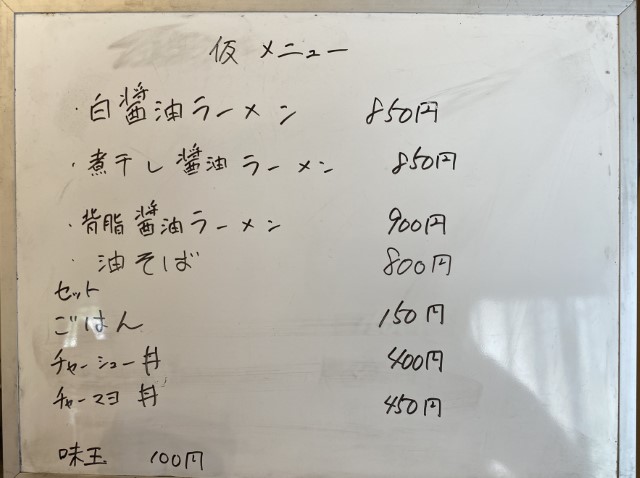 仮メニュー
・白醤油ラーメン 850円
・煮干し醤油ラーメン 850円
・背脂醤油ラーメン 900円
・油そば 800円
セット
ごはん 150円
チャーシュー丼 400円
チャーマヨ丼 450円
味玉 100円